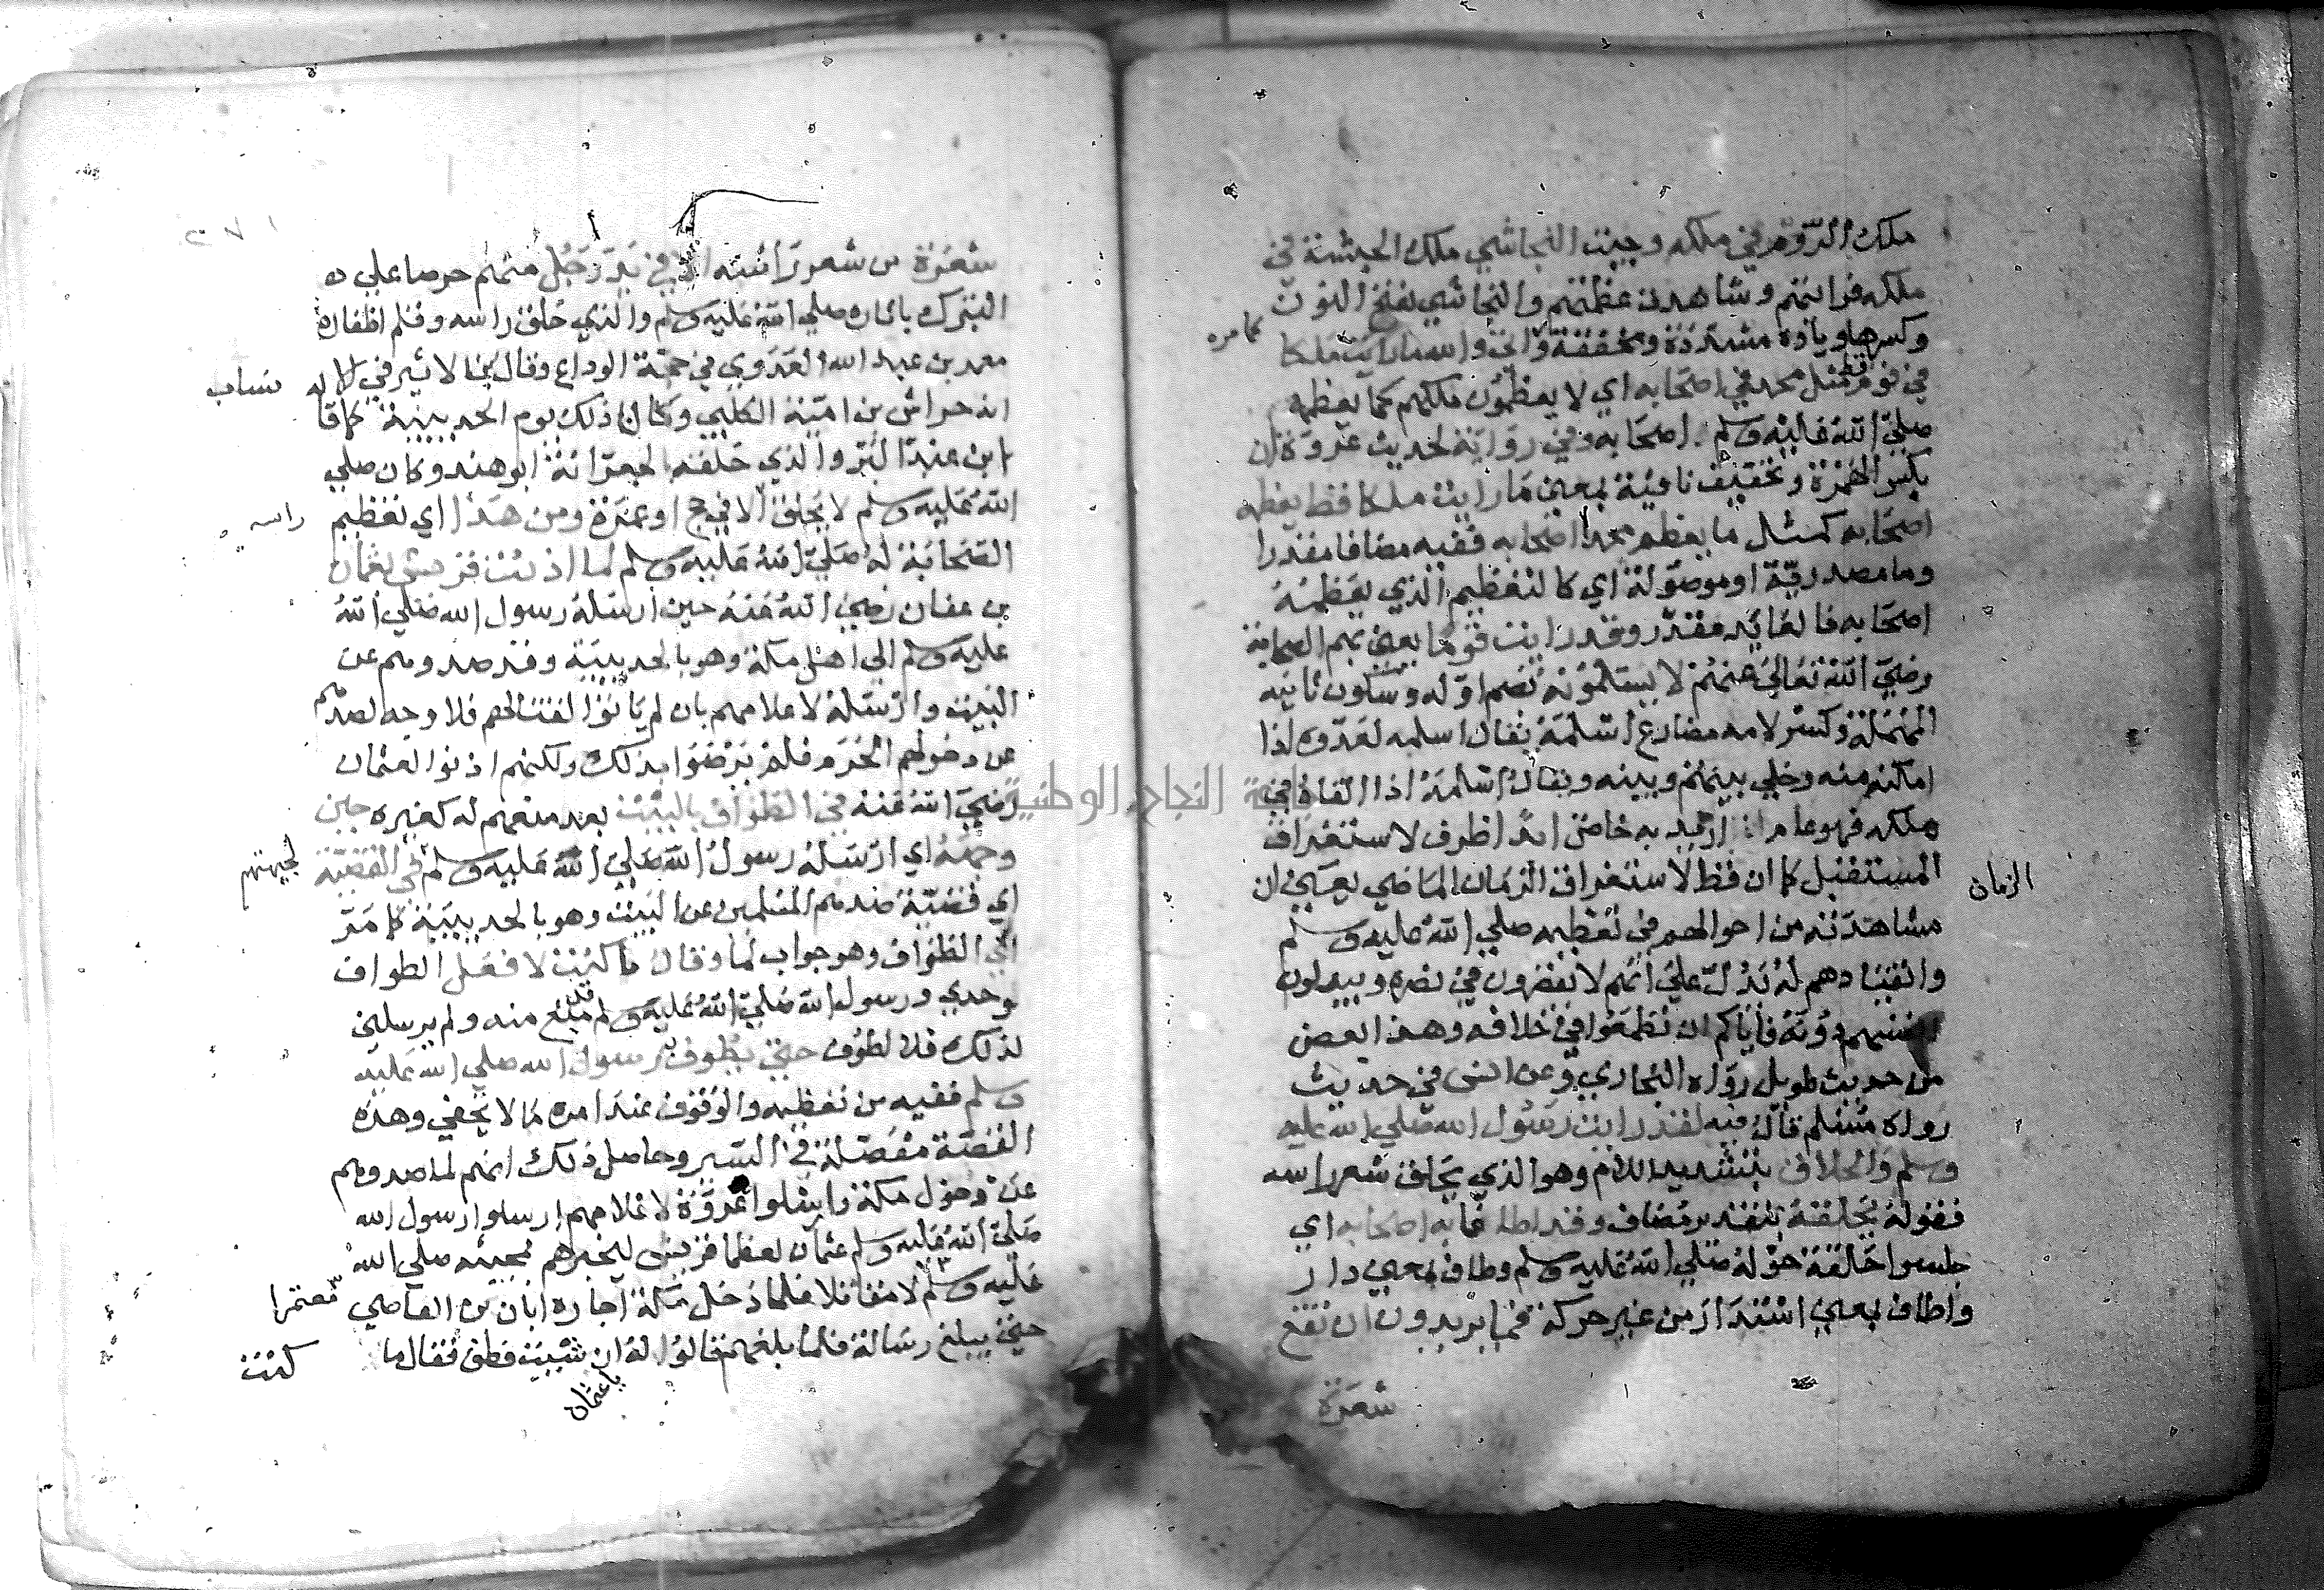 ملك الروم في ملكه وجيت النجاشي ملك الحبشة في
ملكه فرايتهم وشاهدت عظمتهم والنجاشي بفتح النون
وكسرها وياوه مشددة ومخففة واني والله ما رايت ملكا
كما مره
في قوم قط مثل محمد في اصحابه اي لا يعظمون ملكهم كما يعظمه
صلي الله عليه وسلم اصحابه وفي رواية لحديث عروة ان
بكسر الهمزة وتخفيف نافية بمعني ما رايت ملكا قط يعظمه
اصحابه كمثل ما يعظم محمدا اصحابه ففيه مضاف مقدر
وما مصدرية او موصولة اي كالتعظيم الذي يعظمه
اصحابه فالعائد مقدر وقد رايت قوما يعني بهم الصحابة
رضي الله تعالي عنهم لا يسلمونه بضم اوله وسكون ثانيه
المهملة وكسر لامه مضارع اسلمه يقال اسلمه لعدوه اذا
امكنه منه وخلي بينهم وبينه ويقال اسلمه اذا القاه في
هلكه فهو عام اريد به خاص ابدا ظرف لاستغراق
المستقبل كما ان قط لاستغراق الزمان الماضي يعني ان
الزمان
مشاهدته من احوالهم في تعظيمه صلي الله عليه وسلم
وانقيادهم له تدل علي انهم لا يقصرون في نصره ويبذلون
انفسهم دونه فاياكم ان تطمعوا في خلافه وهذا بعض
من حديث طويل رواه البخاري وعن انس في حديث
رواه مسلم قال فيه لقد رايت رسول الله صلي الله عليه
وسلم والحلاق بتشديد اللام وهو الذي يحلق شعر راسه
فقوله يحلقه بتقدير مضاف وقد اطاف به اصحابه اي
جلسوا حلقة حوله صلي الله عليه وسلم وطاف بمعني دار
واطاف بمعني استدار من غير حركة فما يريدون ان تقع
شعرة
شعرة من شعر راسه الا في يد رجل منهم حرصا علي
التبرك باثاره صلي الله عليه وسلم والذي حلق راسه وقلم اظفاره
معمر بن عبد الله العدوي في حجة الوداع وقال ابن الاثير في
انه خراش بن امية الكلبي وكان ذلك يوم الحديبية كما قال
ابن عبد البر والذي حلقه بالجعرانة ابو هند وكان صلي
الله عليه وسلم لا يحلق الا في حج او عمرة ومن هذا اي تعظيم
راسه
الصحابة له صلي الله عليه وسلم لما اذنت قريش لعثمان
بن عفان رضي الله عنه حين ارسله رسول الله صلي الله
عليه وسلم الي اهل مكة وهو بالحديبية وقد صدوهم عن
البيت وارسله لاعلامهم بان لم ياتوا لقتالهم فلا وجه لصدهم
عن دخولهم الحرم فلم يرضوا بذلك ولكنهم اذنوا لعثمان
رضي الله عنه في الطواف بالبيت بعد منعهم له كغيره حين
وجهه اي ارسله رسول الله صلي الله عليه وسلم في القضية
لجهتهم
اي قضية صدهم المسلمين عن البيت وهو بالحديبية كما مر
ابي الطواف وهو جواب لما وقال ما كنت لافعل الطواف
وحدي ورسول الله صلي الله عليه وسلم قد منع منه ولم يرسلني
لذلك فلا اطوف حتي يطوف رسول الله صلي الله عليه
وسلم ففيه من تعظيمه والوقوف عند امره ما لا يخفي وهذه
القصة مفصلة في السير وحاصل ذلك انهم لما صدوهم
عن دخول مكة وارسلوا عروة لاعلامهم ارسلوا رسول الله
صلي الله عليه وسلم عثمان لعظما قريش ليخبرهم بمجيئه صلي الله
عليه وسلم لا مقاتلا فلما دخل مكة اجاره ابان بن العاصي
معتمرا
حتي يبلغ رسالة فلما بلغهم قالوا له ان شيت فطف فقال ما
يا عثمان
كنت
جامعة النجاح الوطنية